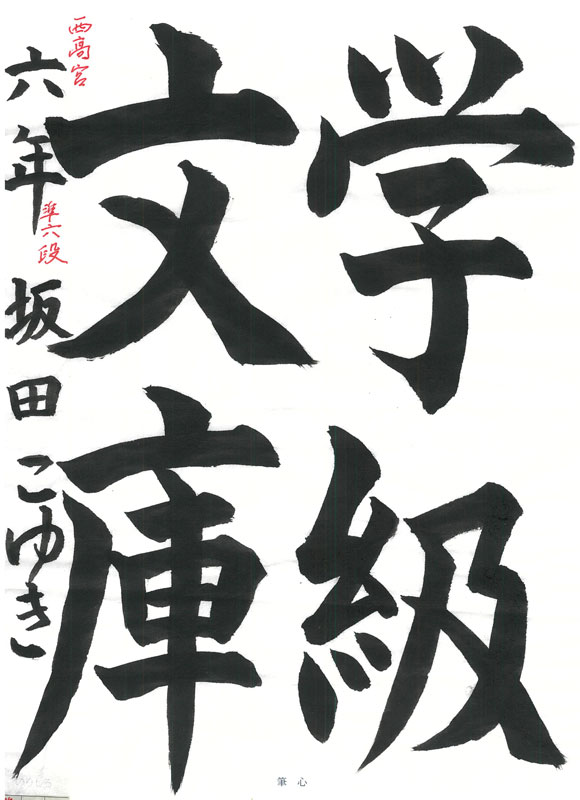 学級
文庫
西高宮
六年 坂田こゆき
準六段
筆心